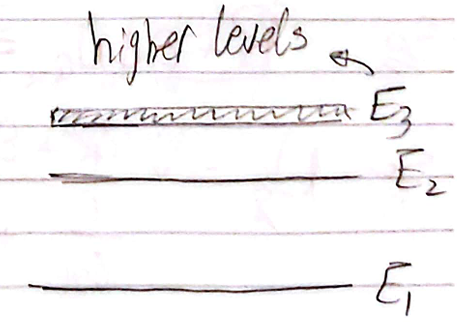 higher levels
E₃
E₂
E₁